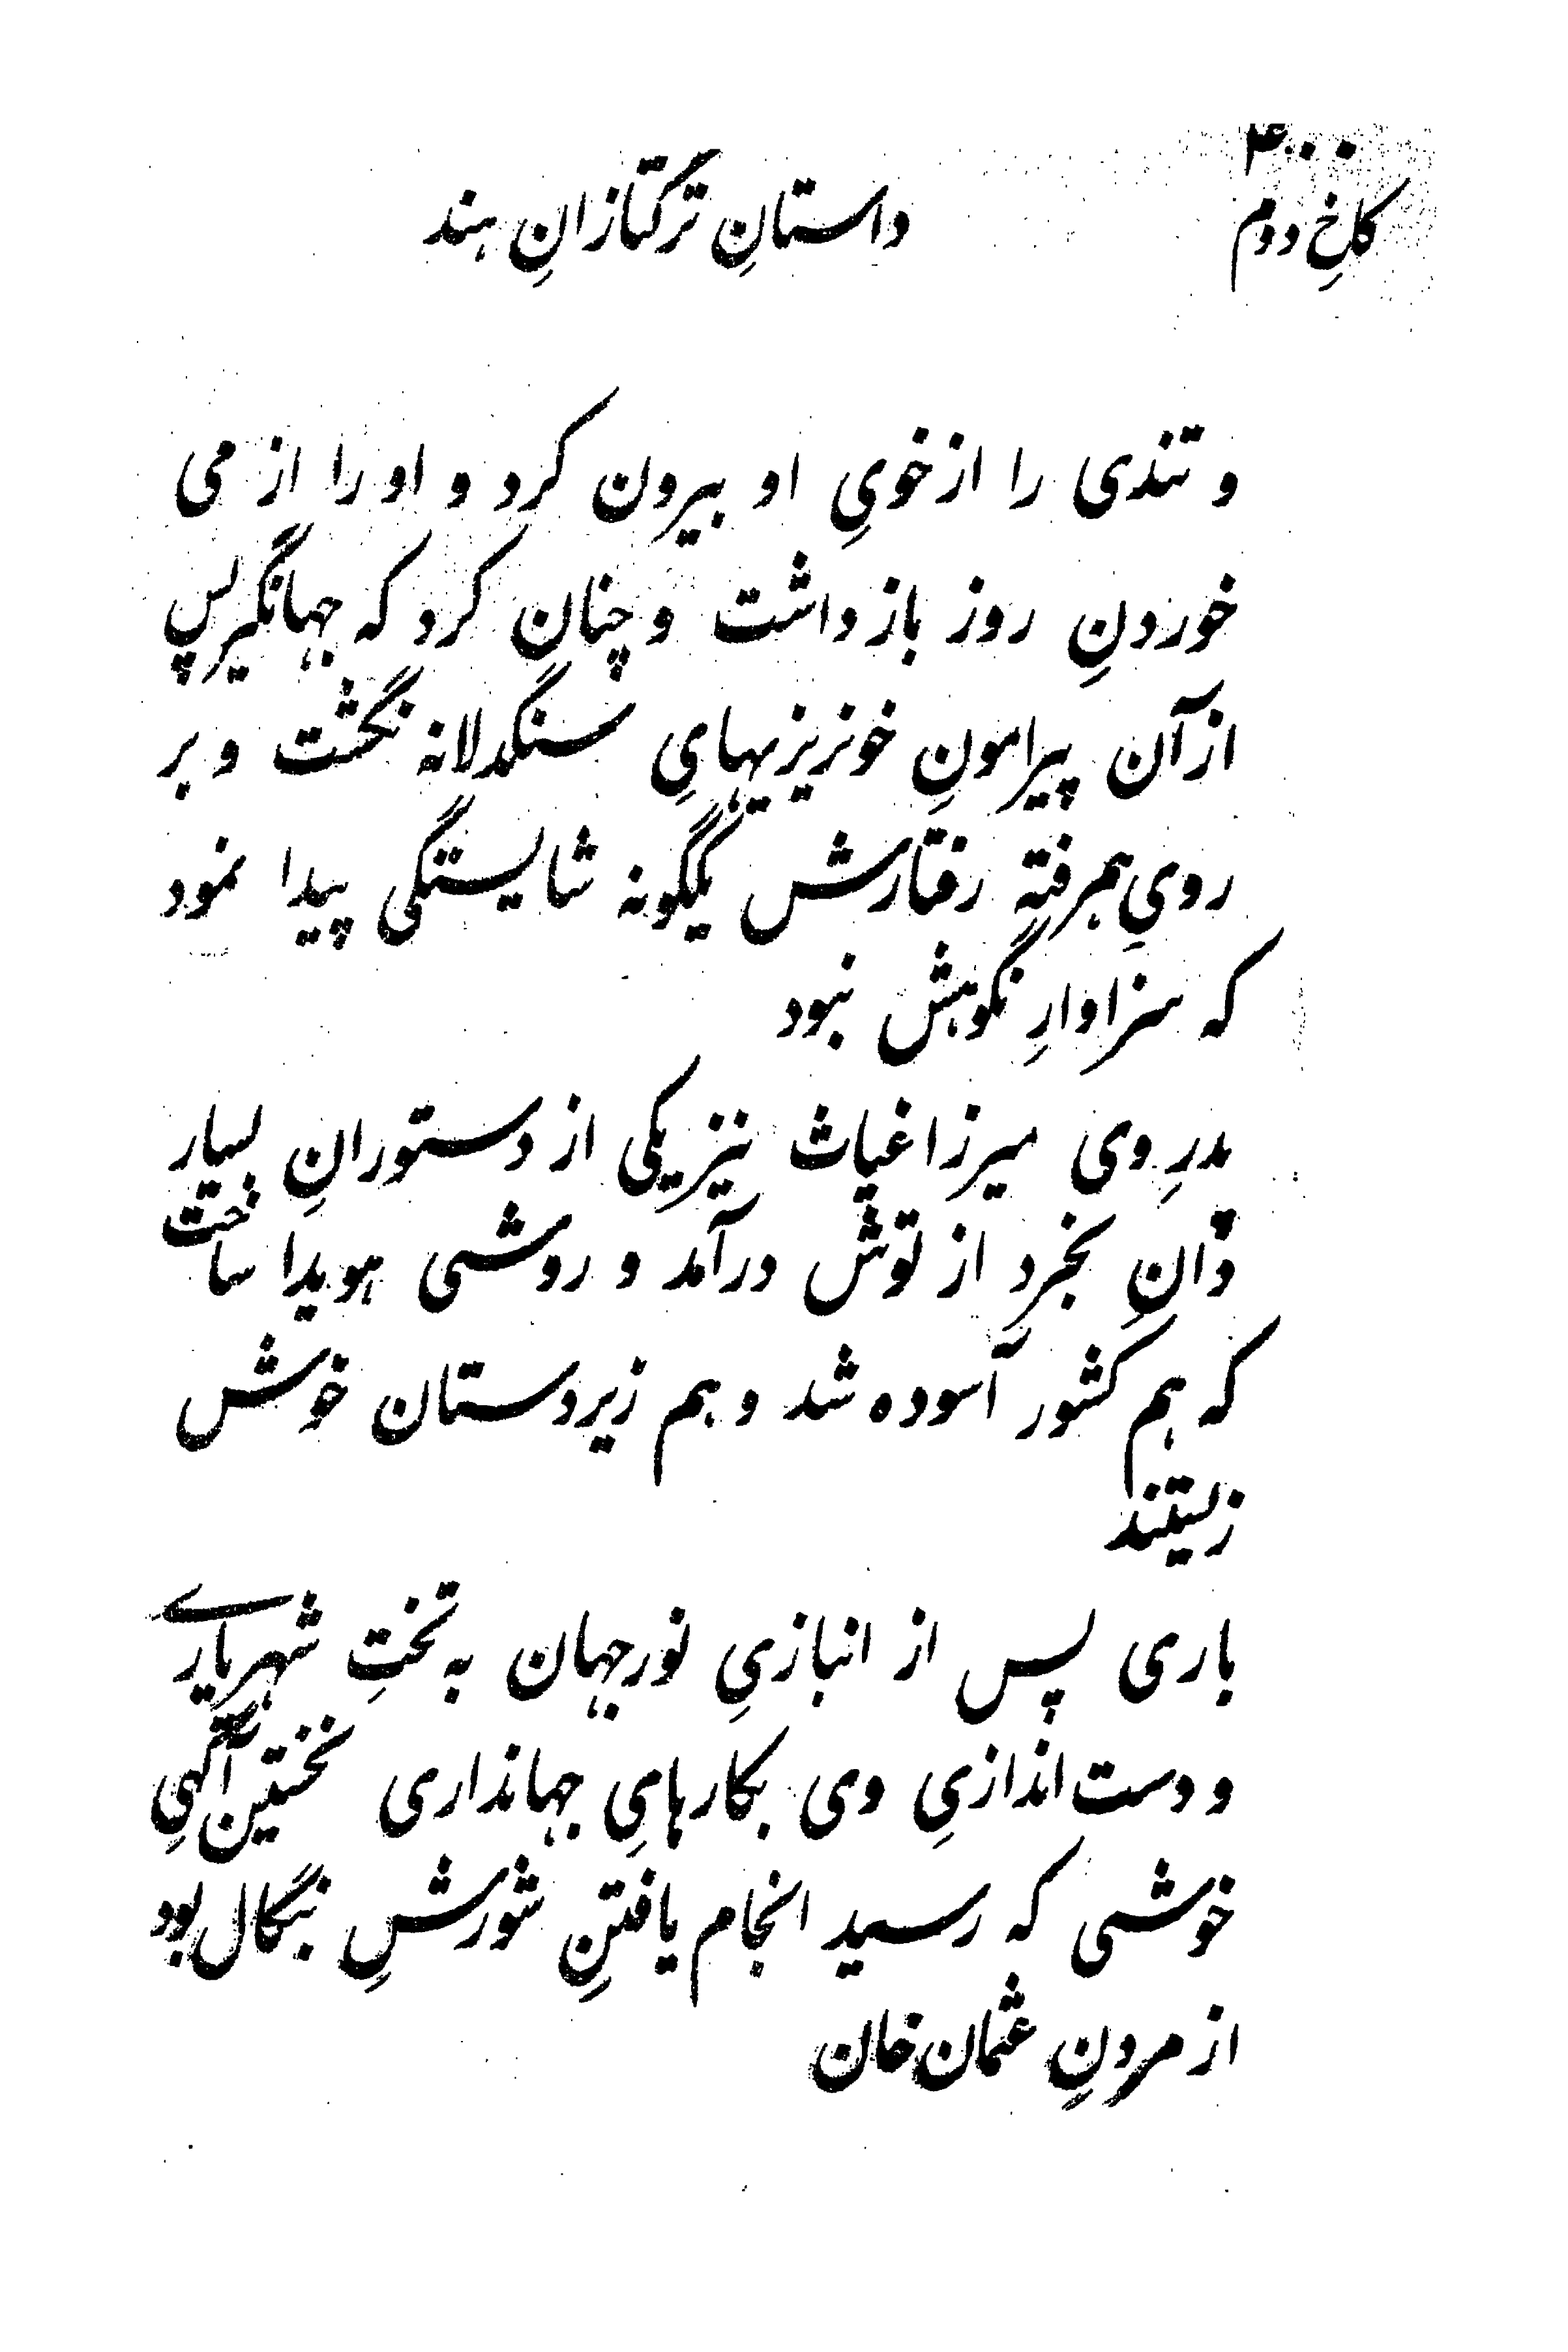 ۴۰۰
کاخِ دوم
داستانِ ترکتازانِ هند
و تندی را از خویِ او بیرون کرد و او را از می
خوردنِ روز بازداشت و چنان کرد که جهانگیر پس
از آن پیرامونِ خونریزیهایِ سنگدلانه نگشت و بر
رویِ همرفته رفتارش یکگونه شایستگی پیدا نمود
که سزاوارِ نکوهش نبود
پدرِ وی میرزا غیاث نیز یکی از دستورانِ بسیار
دانِ بخرد از توش درآمد و روشی هویدا ساخت
که هم کشور آسوده شد و هم زیردستان خوش
زیستند
باری پس از انبازیِ نورجهان به تختِ شهریاری
و دست‌اندازیِ وی بکارهایِ جهانداری نخستین آگهیِ
خوشی که رسید انجام یافتنِ شورشِ بنگال بود
از مردنِ عثمان خان